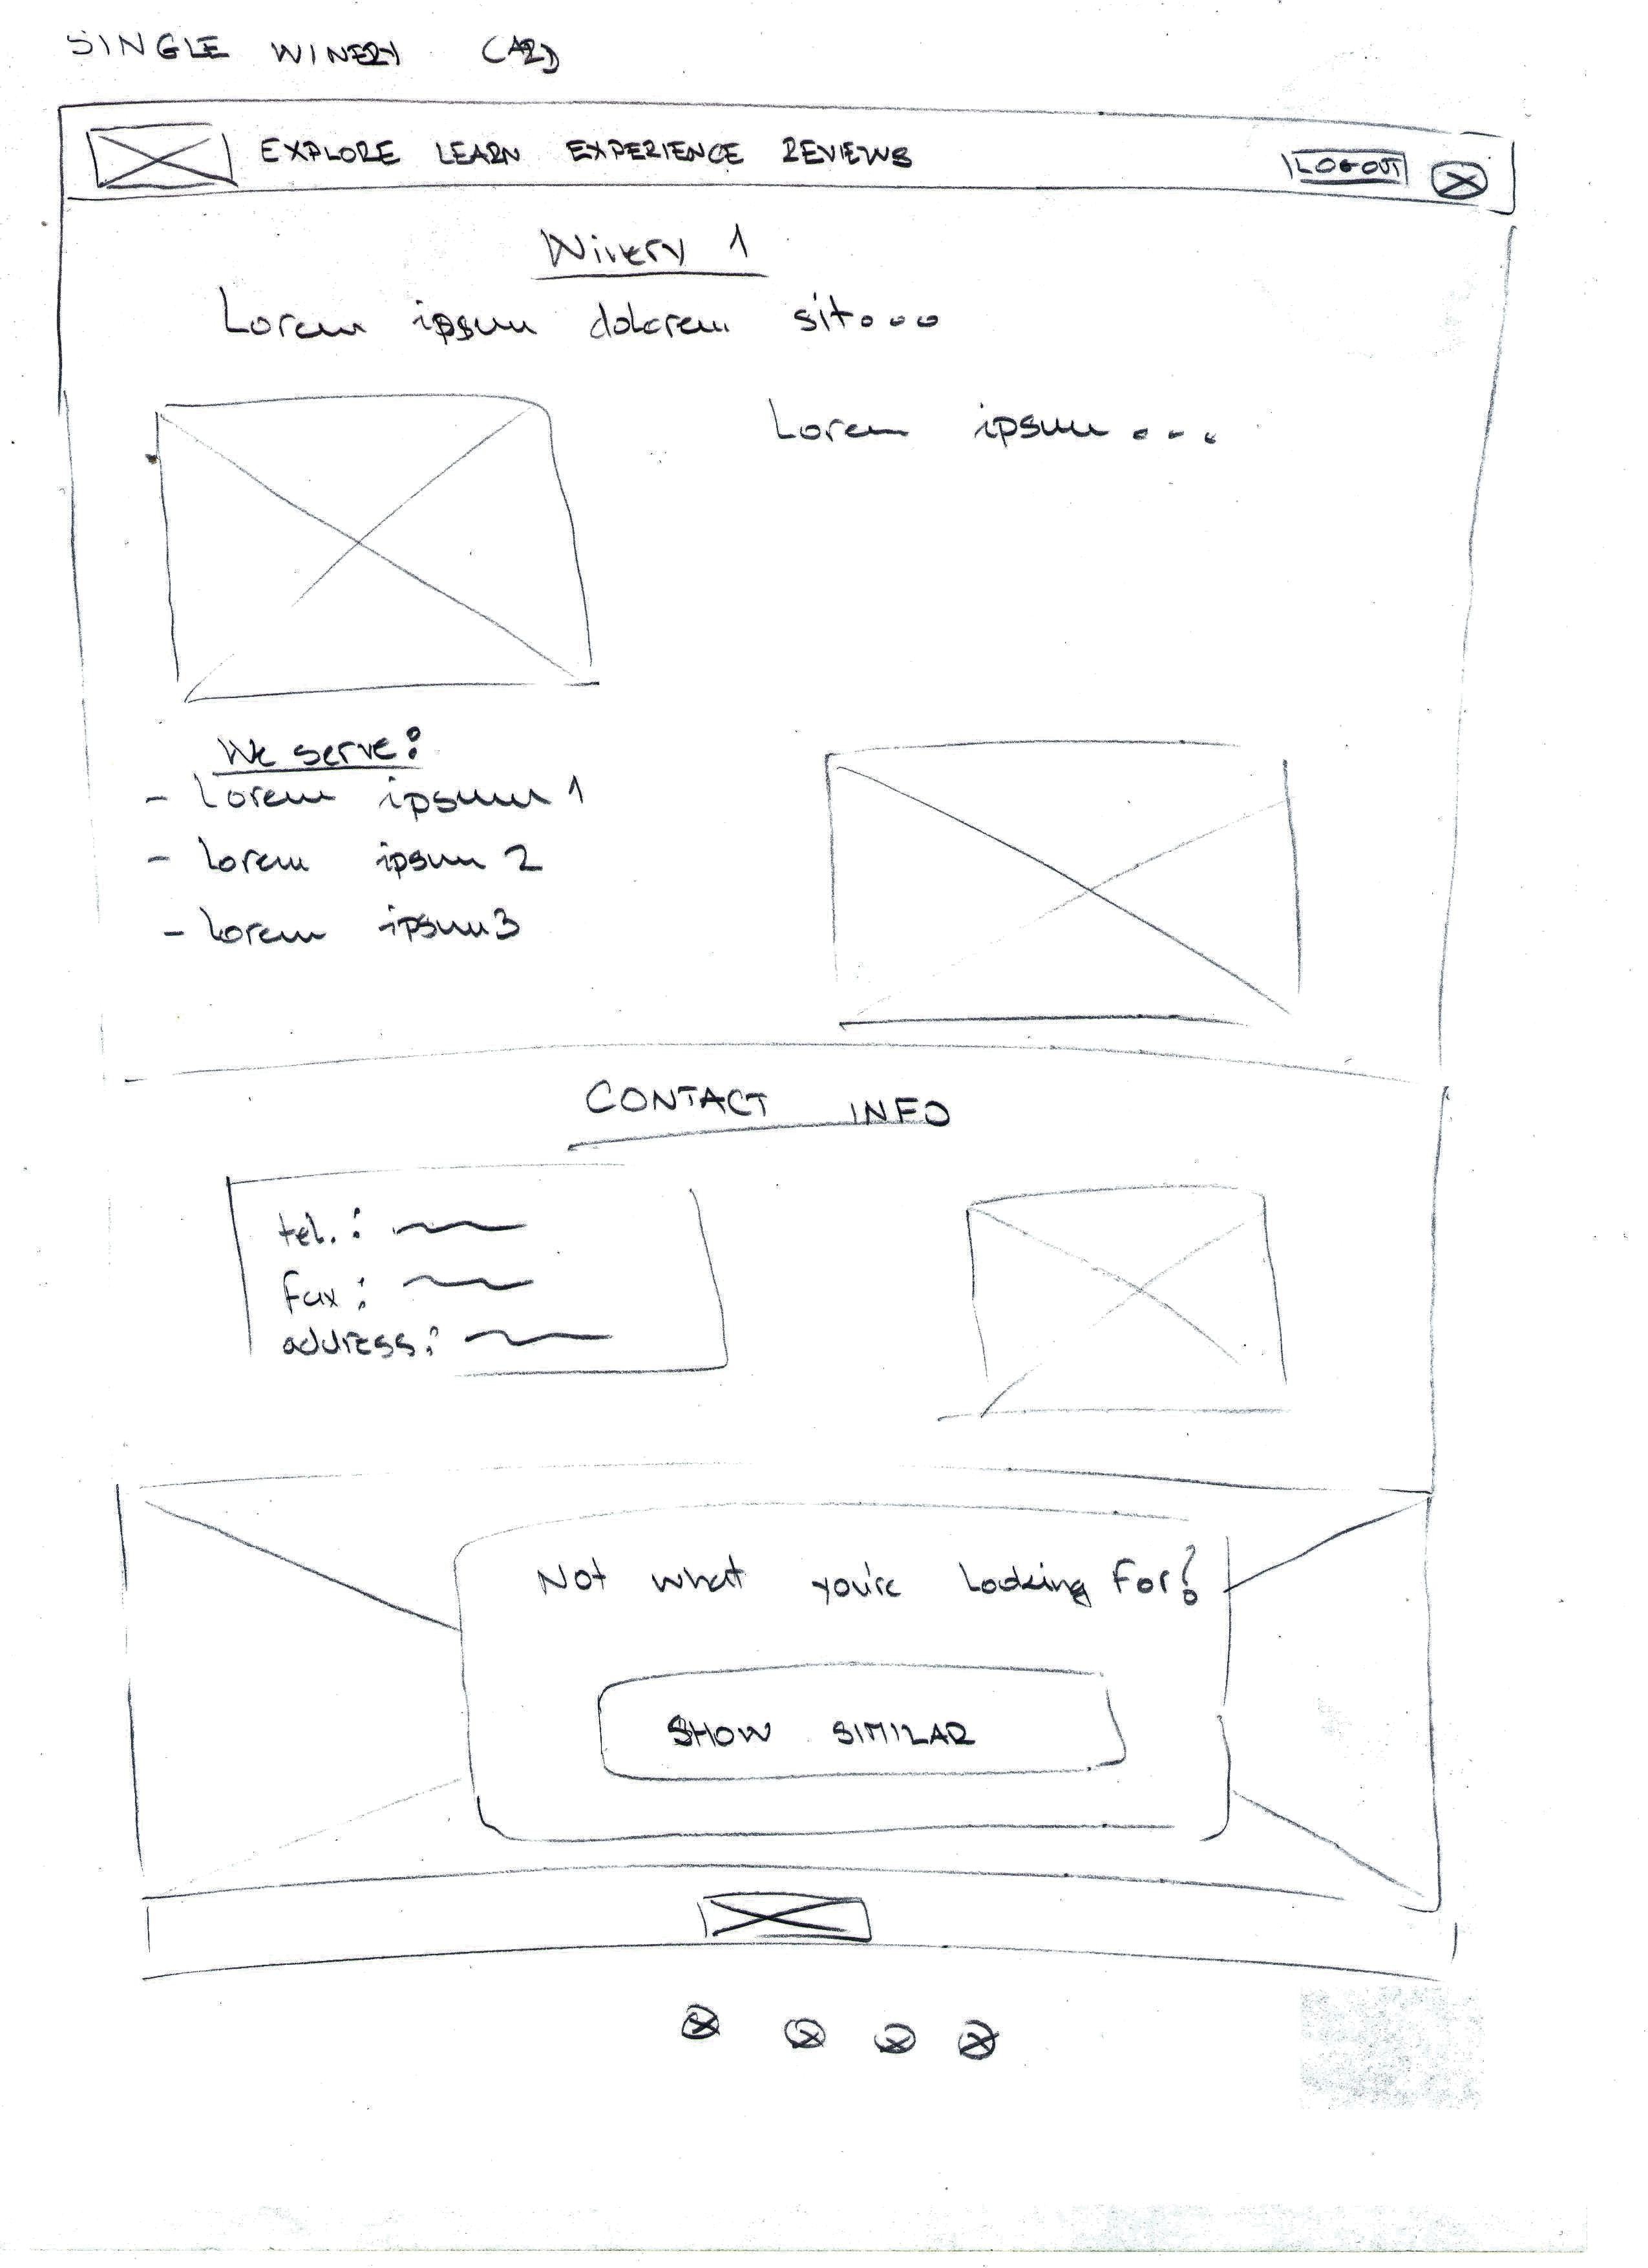 SINGLE WINERY CARD
EXPLORE LEARN EXPERIENCE REVIEWS LOGOUT
Winery 1
Lorem ipsum dolorem sit...
Lorem ipsum...
We serve:
- Lorem ipsum 1
- Lorem ipsum 2
- Lorem ipsum 3
CONTACT INFO
tel.:
fax:
address:
Not what you're looking for?
SHOW SIMILAR